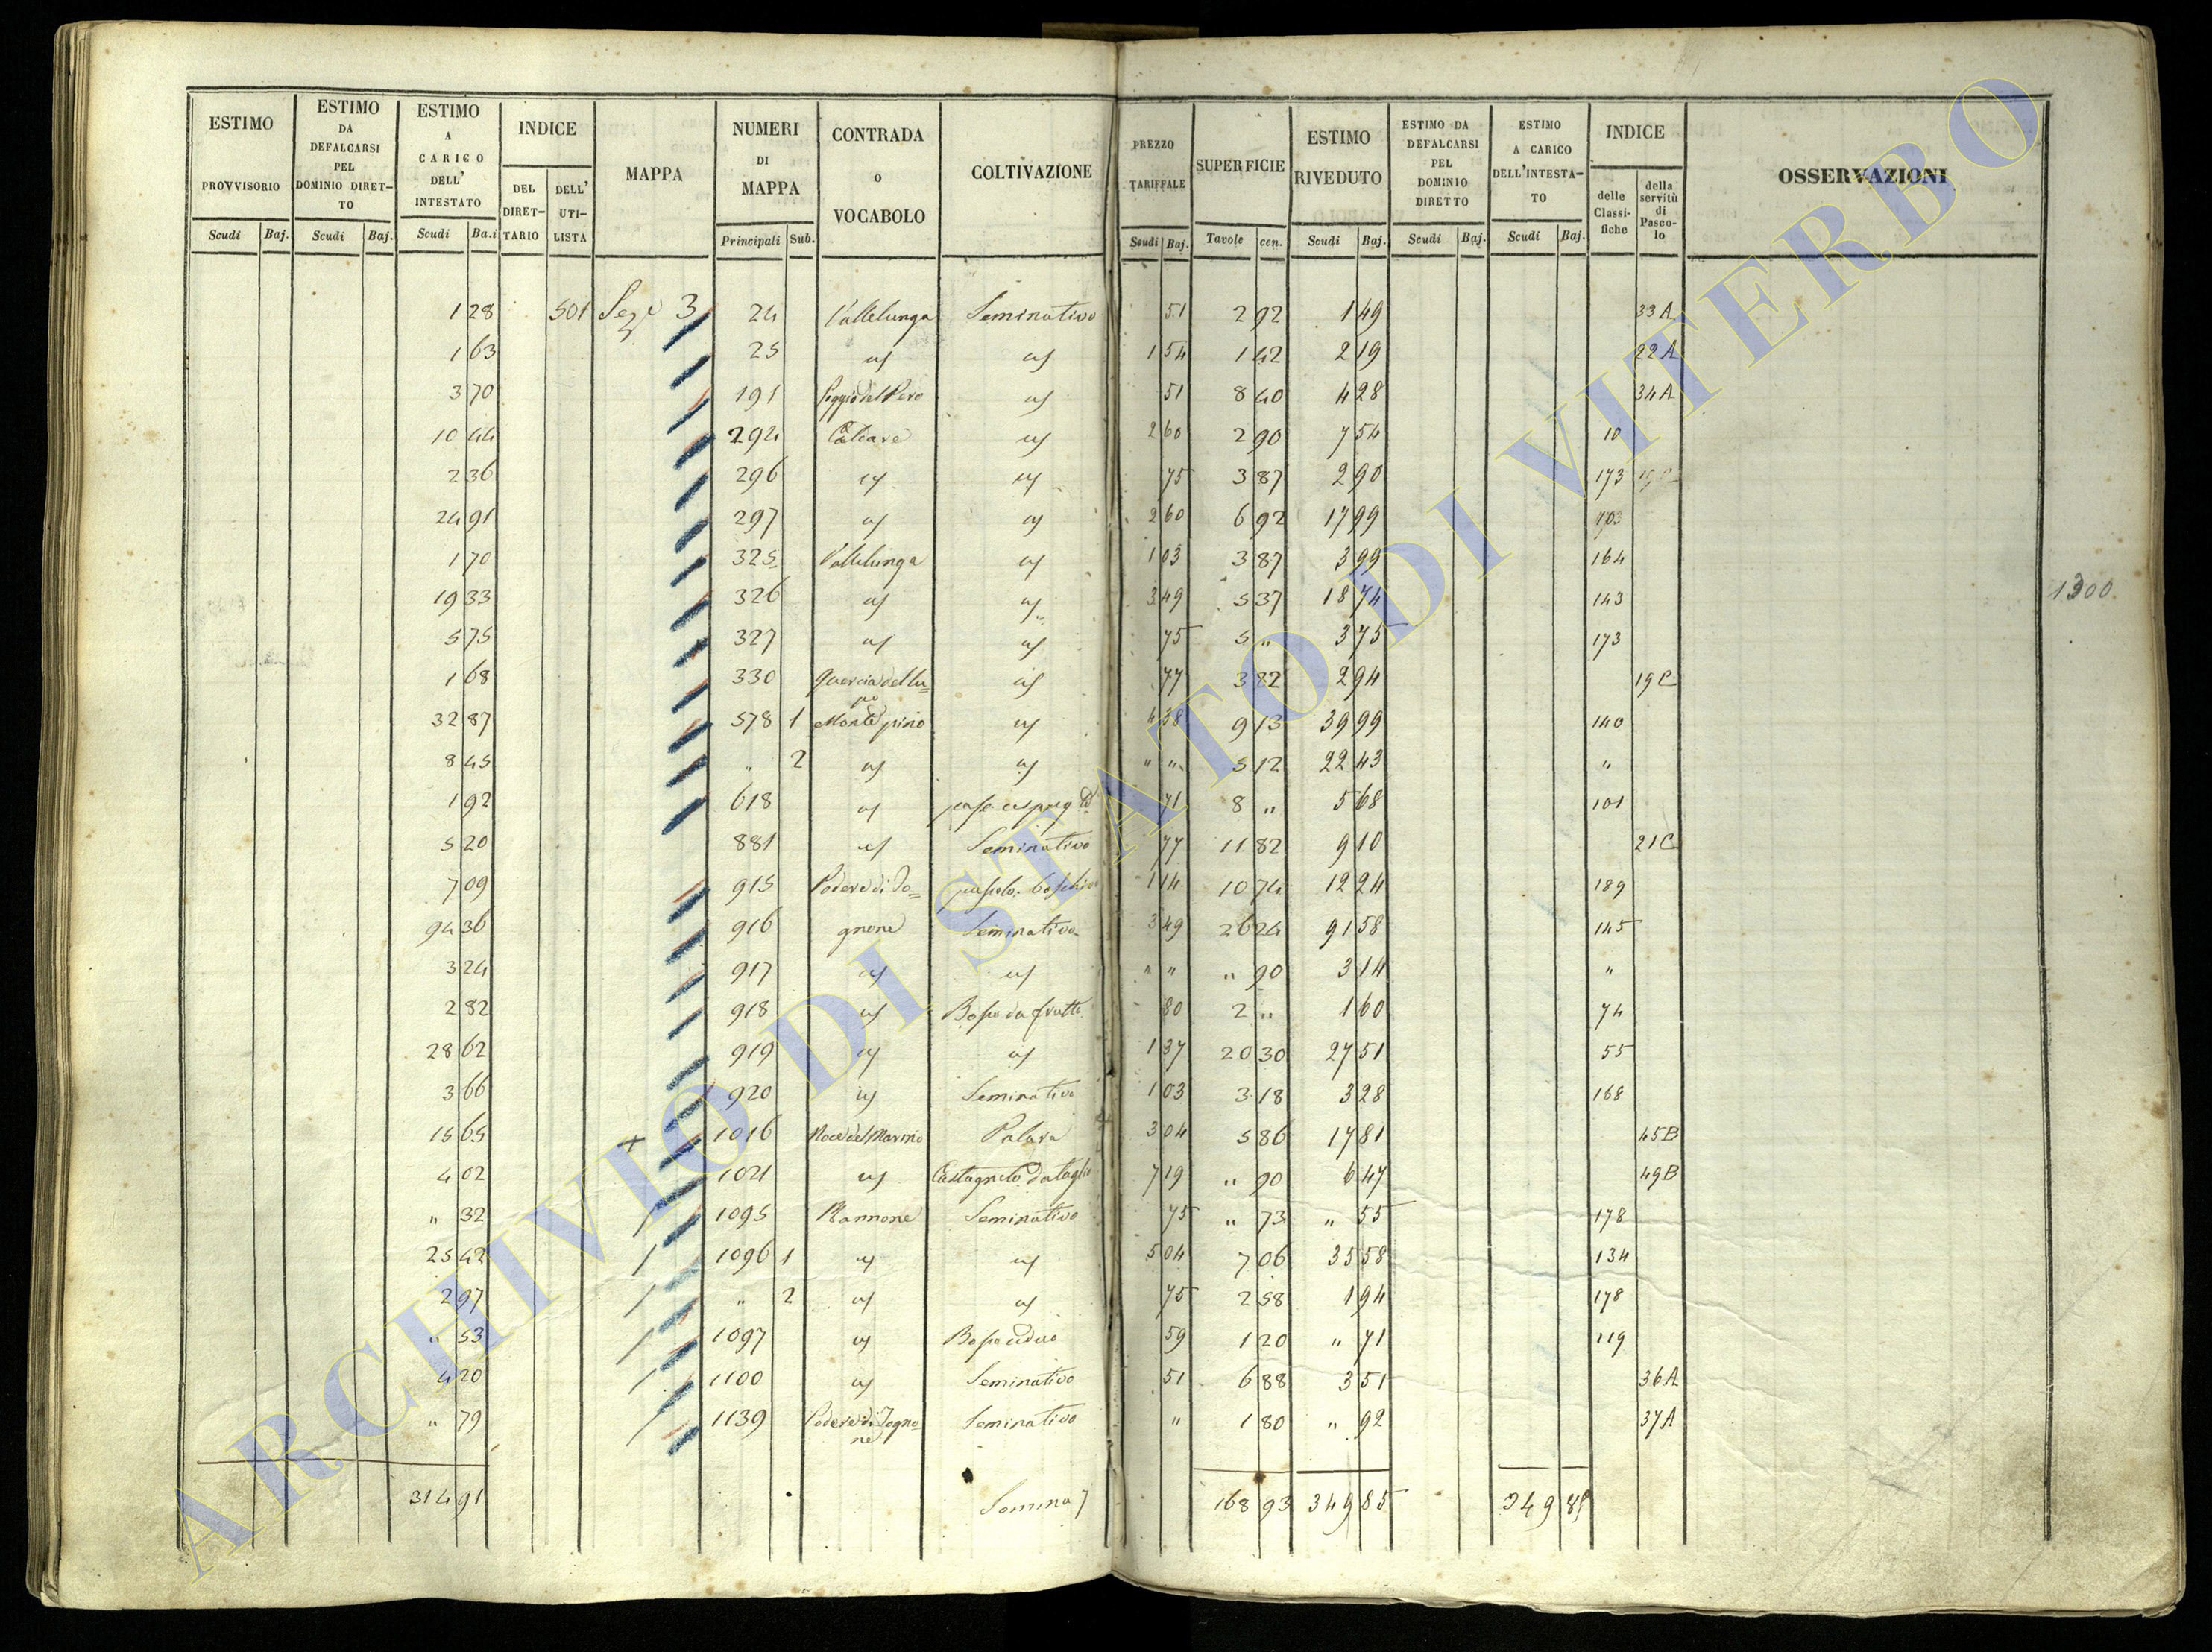 ESTIMO PROVVISORIO Scudi Baj.
ESTIMO DA DEFALCARSI PEL DOMINIO DIRET-TO Scudi Baj.
ESTIMO A CARICO DELL' INTESTATO Scudi Ba.i
INDICE DEL DIRET-TARIO DELL' UTI-LISTA
MAPPA
NUMERI DI MAPPA Principali Sub.
CONTRADA o VOCABOLO
COLTIVAZIONE
PREZZO TARIFFALE Scudi Baj.
SUPERFICIE Tavole cen.
ESTIMO RIVEDUTO Scudi Baj.
ESTIMO DA DEFALCARSI PEL DOMINIO DIRETTO Scudi Baj.
ESTIMO A CARICO DELL'INTESTA-TO Scudi Baj.
INDICE delle Classi-fiche della servitù di Pasco-lo
OSSERVAZIONI
1 28 501 Sez.e 3 24 Vallelunga Seminativo 51 2 92 1 49 33A
1 63 25 id 1 54 1 42 2 19 22A
3 70 191 Poggio del Pero id 51 8 40 4 28 34A
10 44 294 id 2 60 2 90 7 54 10
2 36 296 id id 75 3 87 2 90 173
24 91 297 id id 2 60 6 92 17 99 103
1 70 325 Vallelunga id 1 03 3 87 3 99 164
19 33 326 id id 3 49 5 37 18 74 143
5 75 327 id id 75 5 " 3 75 173
1 68 330 Quercia del lu=po id 77 3 82 2 94 19C
32 87 578 1 Monte pino id 4 38 9 13 39 99 140
8 45 " 2 id id " " 5 12 22 43 "
1 92 618 id 71 8 " 5 68 101
5 20 881 id Seminativo 77 11 82 9 10 21C
7 09 915 Podere di To= pascolo boschivo 1 14 10 74 12 24 189
94 36 916 gnone Seminativo 3 49 26 24 91 58 145
3 24 917 id id " " " 90 3 14 "
2 82 918 id Bosco da frutto 80 2 " 1 60 74
28 62 919 id id 1 37 20 30 27 51 55
3 66 920 id Seminativo 1 03 3 18 3 28 168
15 65 + 1016 Noce del Marmo 3 04 5 86 17 81 45B
4 02 1021 id Castagneto da taglio 7 19 " 90 6 47 49B
" 32 1095 Seminativo 75 " 73 " 55 178
25 42 1096 1 id id 5 04 7 06 35 58 134
2 97 " 2 id id 75 2 58 1 94 178
" 53 1097 id Bosco ceduo 59 1 20 " 71 119
4 20 1100 id Seminativo 51 6 88 3 51 36A
" 79 1139 Podere di Togno=ne Seminativo " 1 80 " 92 37A
314 91 Somma 168 93 349 85 349 85
1300
ARCHIVIO DI STATO DI VITERBO